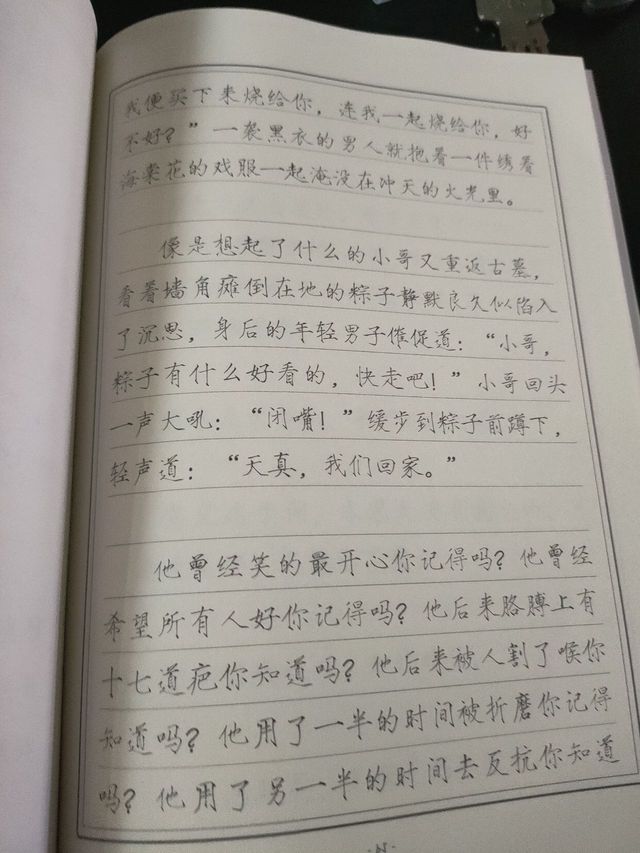 我便买下来烧给你，连我一起烧给你，好
不好？”一袭黑衣的男人就抱着一件绣着
海棠花的戏服一起淹没在冲天的火光里。
像是想起了什么的小哥又重返古墓，
看着墙角瘫倒在地的粽子静默良久似陷入
了沉思，身后的年轻男子催促道：“小哥，
粽子有什么好看的，快走吧！”小哥回头
一声大吼：“闭嘴！”缓步到粽子前蹲下，
轻声道：“天真，我们回家。”
他曾经笑的最开心你记得吗？他曾经
希望所有人好你记得吗？他后来胳膊上有
十七道疤你知道吗？他后来被人割了喉你
知道吗？他用了一半的时间被折磨你记得
吗？他用了另一半的时间去反抗你知道